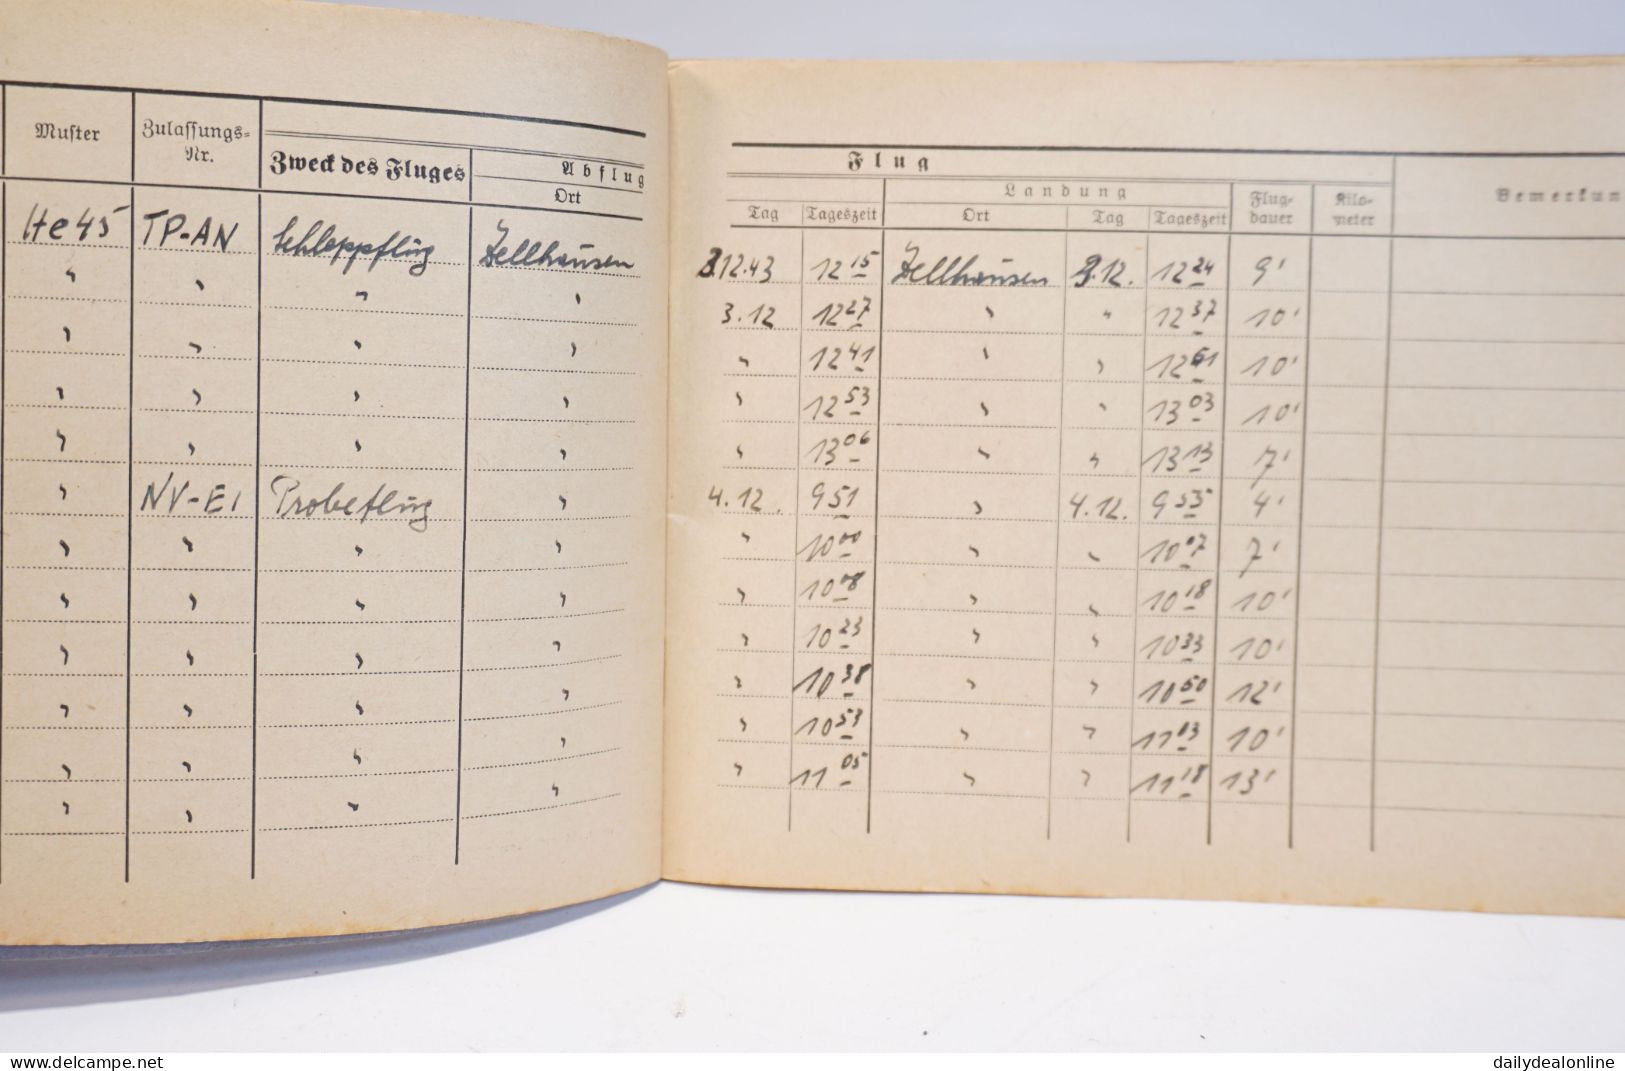 Muster Zulassungs-Nr. Zweck des Fluges Abflug Ort
Flug
Landung
Tag Tageszeit Ort Tag Tageszeit Flug-dauer Kilo-meter Bemerkun
He 45 TP-AN Schleppflug Zellhausen 3.12.43 12 15 Zellhausen 3.12. 12 24 9'
" " " " 3.12 12 27 " " 12 37 10'
" " " " " 12 41 " " 12 51 10'
" " " " " 12 53 " " 13 03 10'
" " " " " 13 06 " " 13 13 7'
" NV-EI Probeflug " 4.12. 9 51 " 4.12. 9 55 4'
" " " " " 10 00 " " 10 07 7'
" " " " " 10 08 " " 10 18 10'
" " " " " 10 23 " " 10 33 10'
" " " " " 10 38 " " 10 50 12'
" " " " " 10 53 " " 11 03 10'
" " " " " 11 05 " " 11 18 13'
www.delcampe.net dailydealonline